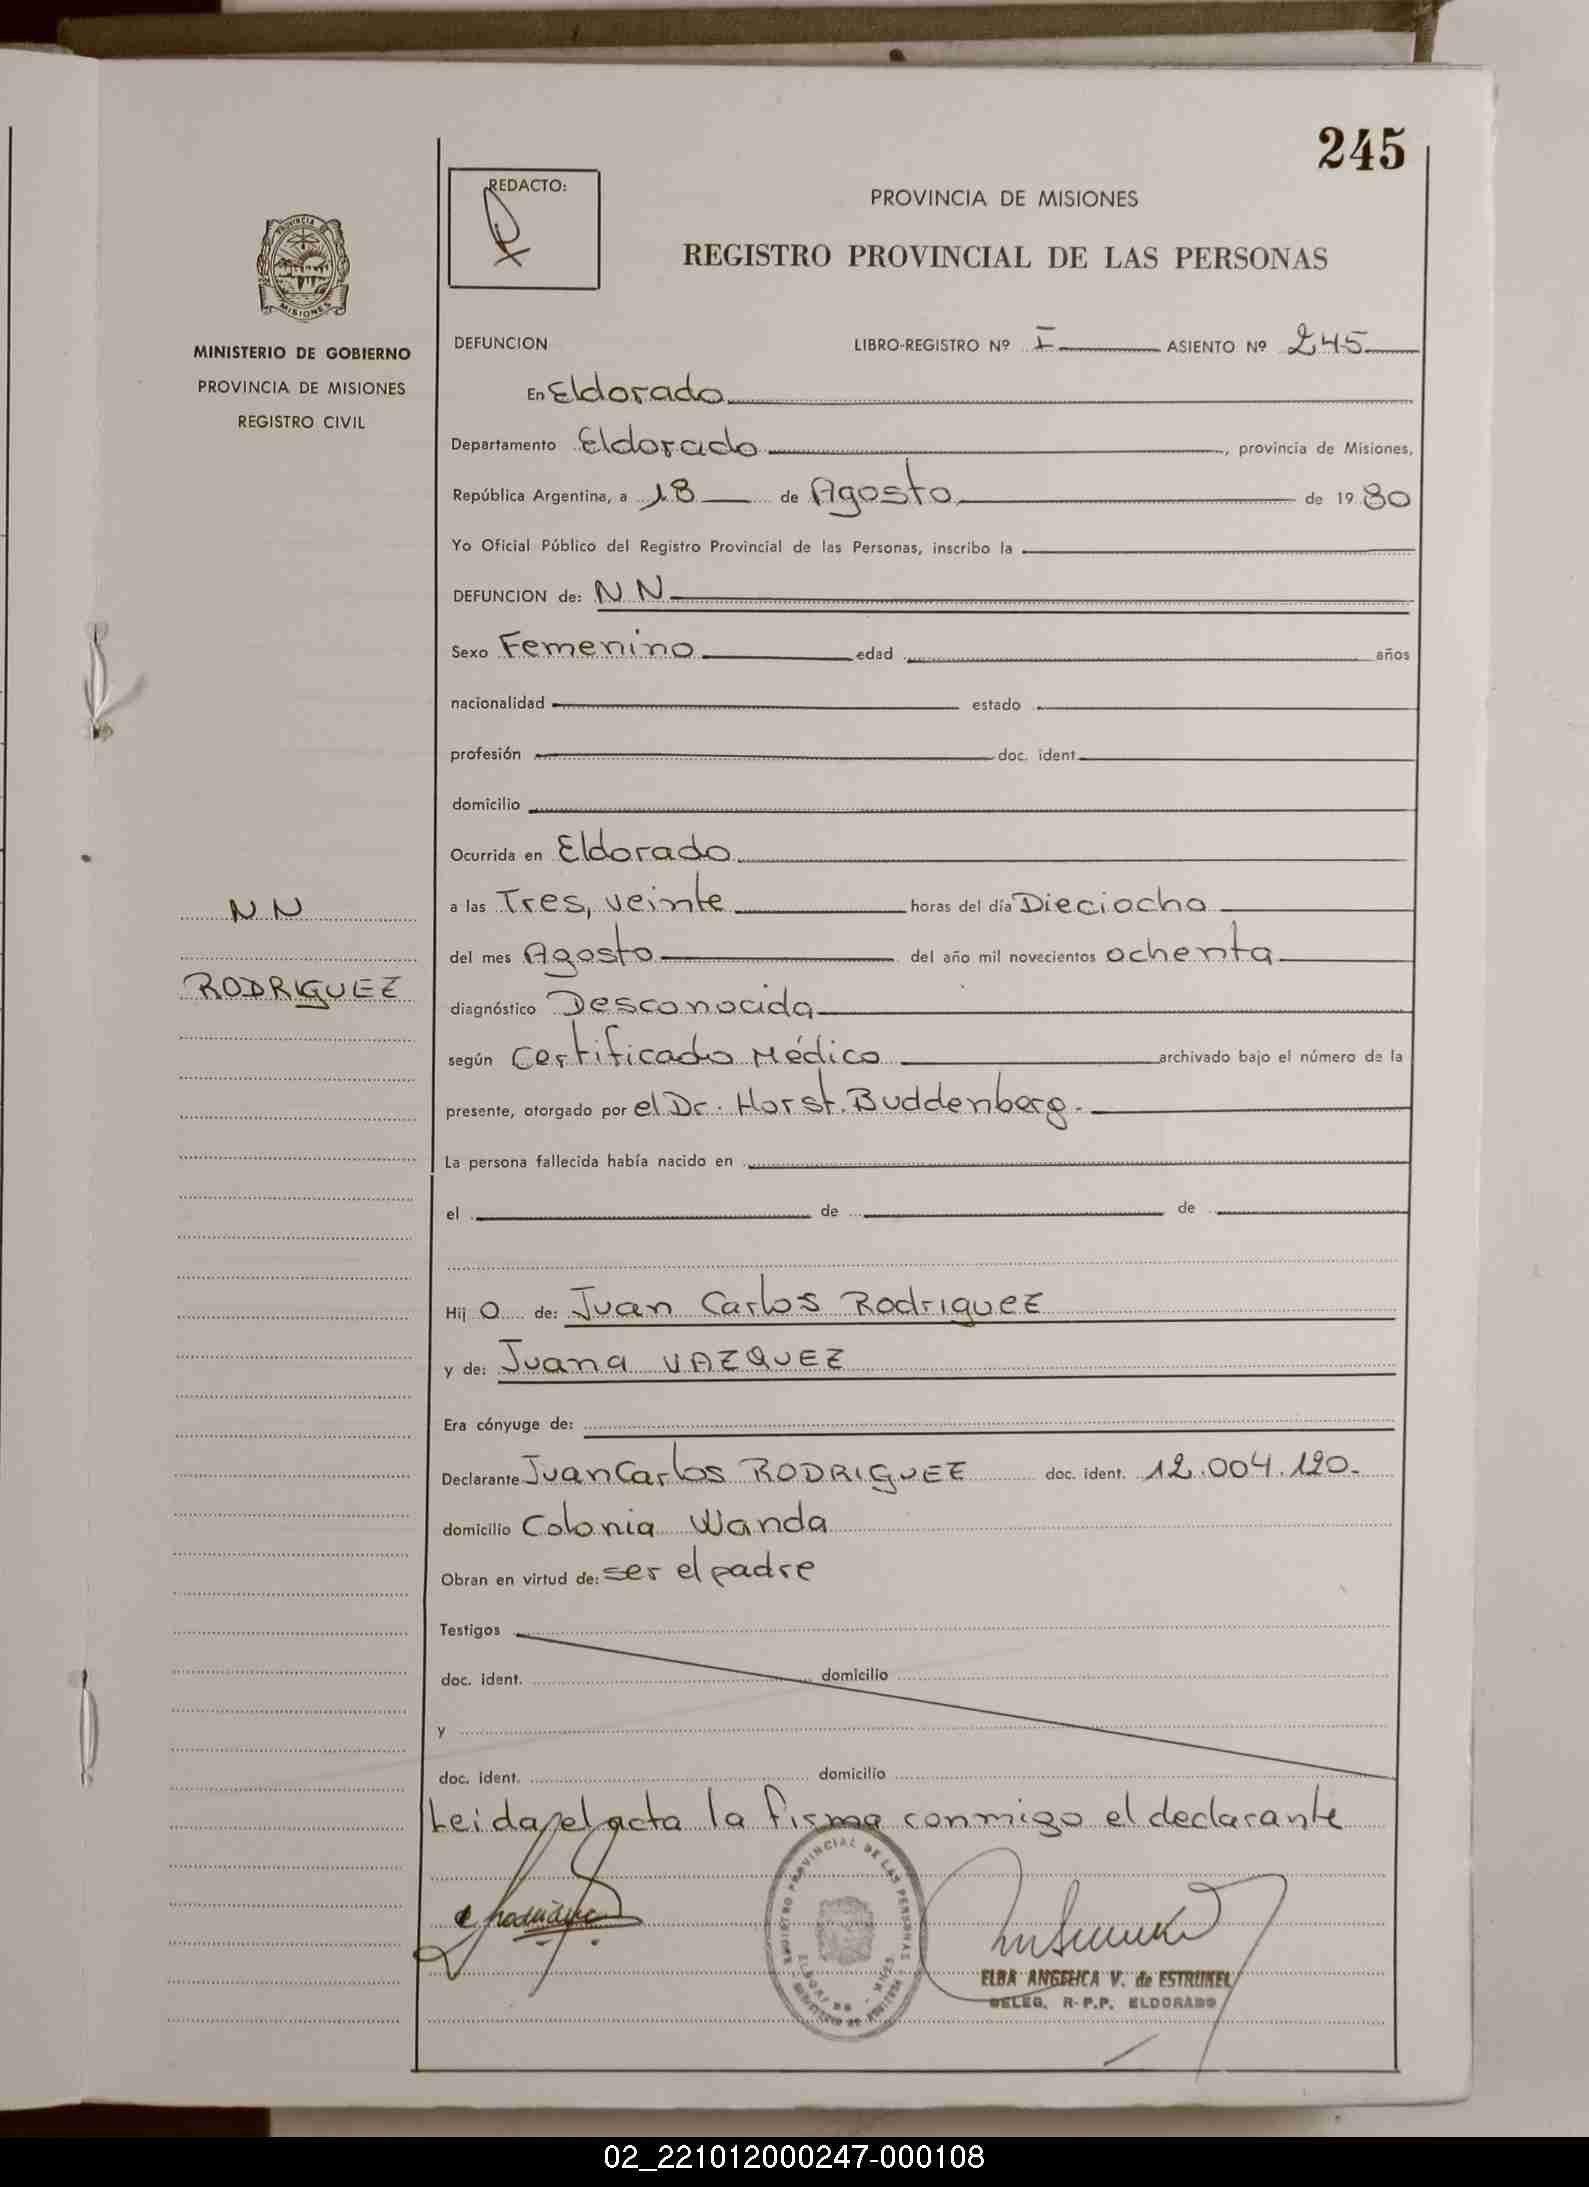 245
REDACTO:
PROVINCIA DE MISIONES
REGISTRO PROVINCIAL DE LAS PERSONAS
PROVINCIA DE
MISIONES
MINISTERIO DE GOBIERNO
PROVINCIA DE MISIONES
REGISTRO CIVIL
DEFUNCION LIBRO-REGISTRO Nº I ASIENTO Nº 245
En Eldorado
Departamento Eldorado, provincia de Misiones,
República Argentina, a 18 de Agosto de 1980
Yo Oficial Público del Registro Provincial de las Personas, inscribo la
DEFUNCION de: N N
Sexo Femenino edad años
nacionalidad estado
profesión doc. ident.
domicilio
Ocurrida en Eldorado
N N
a las Tres, veinte horas del día Dieciocho
del mes Agosto del año mil novecientos ochenta
RODRIGUEZ
diagnóstico Desconocida
según Certificado Médico archivado bajo el número de la
presente, otorgado por el Dr. Horst. Buddenberg.
La persona fallecida había nacido en
el de de
Hij o de: Juan Carlos Rodriguez
y de: Juana VAZQUEZ
Era cónyuge de:
Declarante Juan Carlos RODRIGUEZ doc. ident. 12.004.120.
domicilio Colonia Wanda
Obran en virtud de: ser el padre
Testigos
doc. ident. domicilio
y
doc. ident. domicilio
Leida el acta la firma conmigo el declarante
REGISTRO PROVINCIAL DE LAS PERSONAS
ELBA ANGELICA V. de ESTRUKEL
DELEG. R-P.P. ELDORADO
02_221012000247-000108